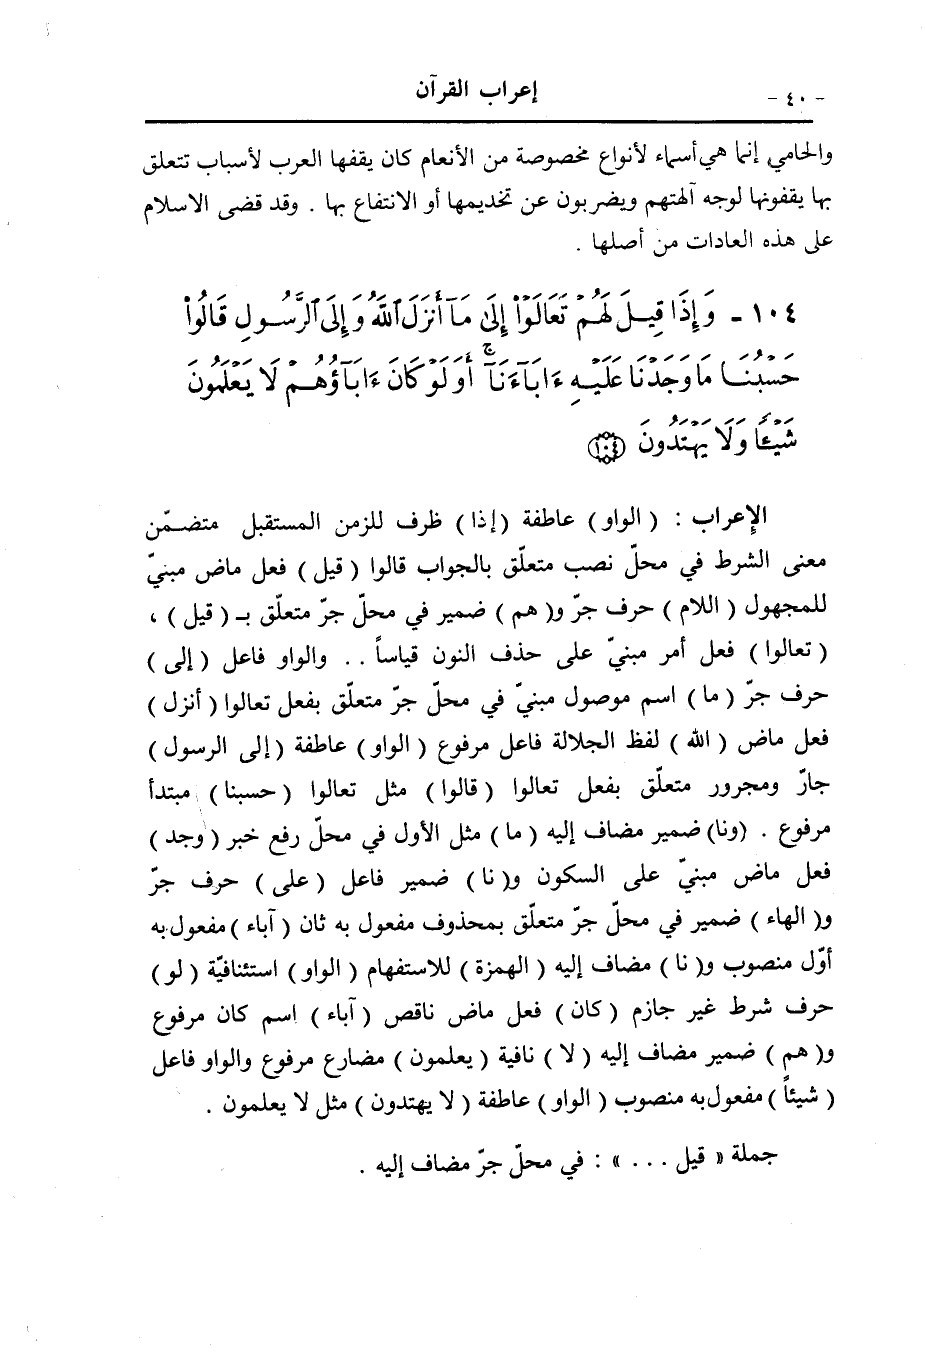 - ٤٠ - إعراب القرآن
والحامي إنما هي أسماء لأنواع مخصوصة من الأنعام كان يقفها العرب لأسباب تتعلق
بها يقفونها لوجه آلهتهم ويضربون عن تخديمها أو الانتفاع بها . وقد قضى الاسلام
على هذه العادات من أصلها .
١٠٤ - وَإِذَا قِيلَ لَهُمْ تَعَالَوْا۟ إِلَىٰ مَآ أَنزَلَ ٱللَّهُ وَإِلَى ٱلرَّسُولِ قَالُوا۟
حَسْبُنَا مَا وَجَدْنَا عَلَيْهِ ءَابَآءَنَآ ۚ أَوَلَوْ كَانَ ءَابَآؤُهُمْ لَا يَعْلَمُونَ
شَيْـًٔا وَلَا يَهْتَدُونَ ﴿١٠٤﴾
الإعراب : ( الواو ) عاطفة ( إذا ) ظرف للزمن المستقبل متضمّن
معنى الشرط في محلّ نصب متعلّق بالجواب قالوا ( قيل ) فعل ماض مبنيّ
للمجهول ( اللام ) حرف جرّ و( هم ) ضمير في محلّ جرّ متعلّق بـ ( قيل ) ،
( تعالوا ) فعل أمر مبنيّ على حذف النون قياساً .. والواو فاعل ( إلى )
حرف جرّ ( ما ) اسم موصول مبنيّ في محلّ جرّ متعلّق بفعل تعالوا ( أنزل )
فعل ماض ( الله ) لفظ الجلالة فاعل مرفوع ( الواو ) عاطفة ( إلى الرسول )
جارّ ومجرور متعلّق بفعل تعالوا ( قالوا ) مثل تعالوا ( حسبنا ) مبتدأ
مرفوع . (ونا) ضمير مضاف إليه ( ما ) مثل الأول في محلّ رفع خبر ( وجد )
فعل ماض مبنيّ على السكون و( نا ) ضمير فاعل ( على ) حرف جرّ
و( الهاء ) ضمير في محلّ جرّ متعلّق بمحذوف مفعول به ثان ( آباء ) مفعول به
أوّل منصوب و( نا ) مضاف إليه ( الهمزة ) للاستفهام ( الواو ) استئنافيّة ( لو )
حرف شرط غير جازم ( كان ) فعل ماض ناقص ( آباء ) اسم كان مرفوع
و( هم ) ضمير مضاف إليه ( لا ) نافية ( يعلمون ) مضارع مرفوع والواو فاعل
( شيئاً ) مفعول به منصوب ( الواو ) عاطفة ( لا يهتدون ) مثل لا يعلمون .
جملة « قيل ... » : في محلّ جرّ مضاف إليه .